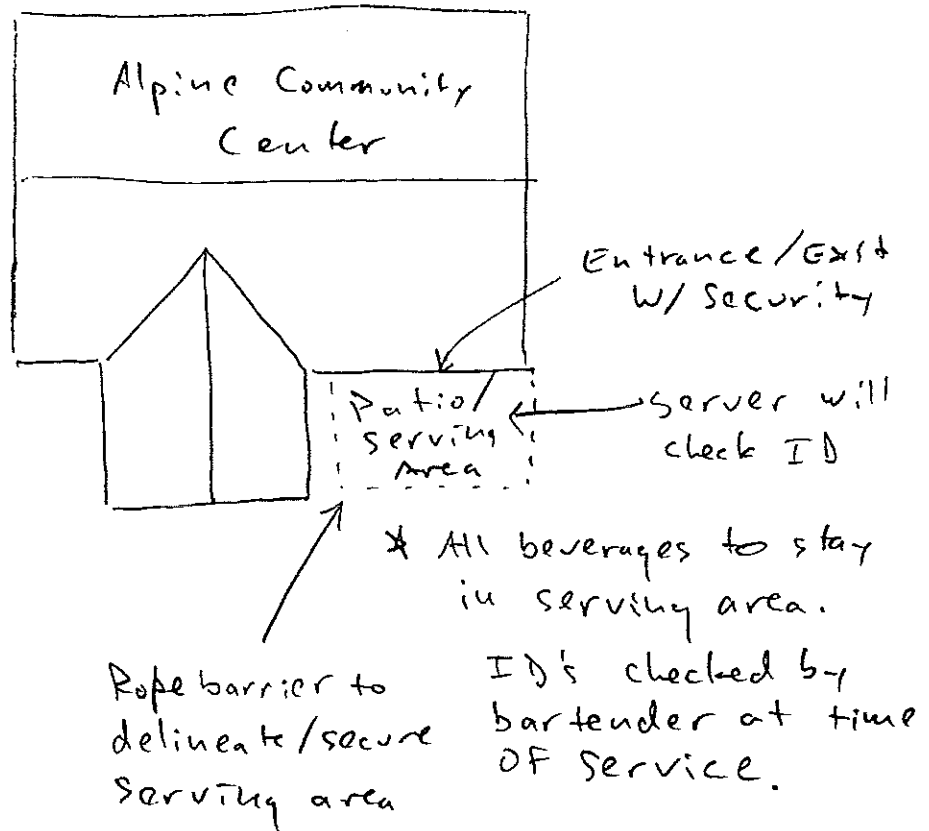 Alpine Community
Center
Entrance/Exit
W/ Security
Patio/
serving
Area
Server will
check ID
* All beverages to stay
in serving area.
ID's checked by
bartender at time
OF Service.
Rope barrier to
delineate/secure
Serving area